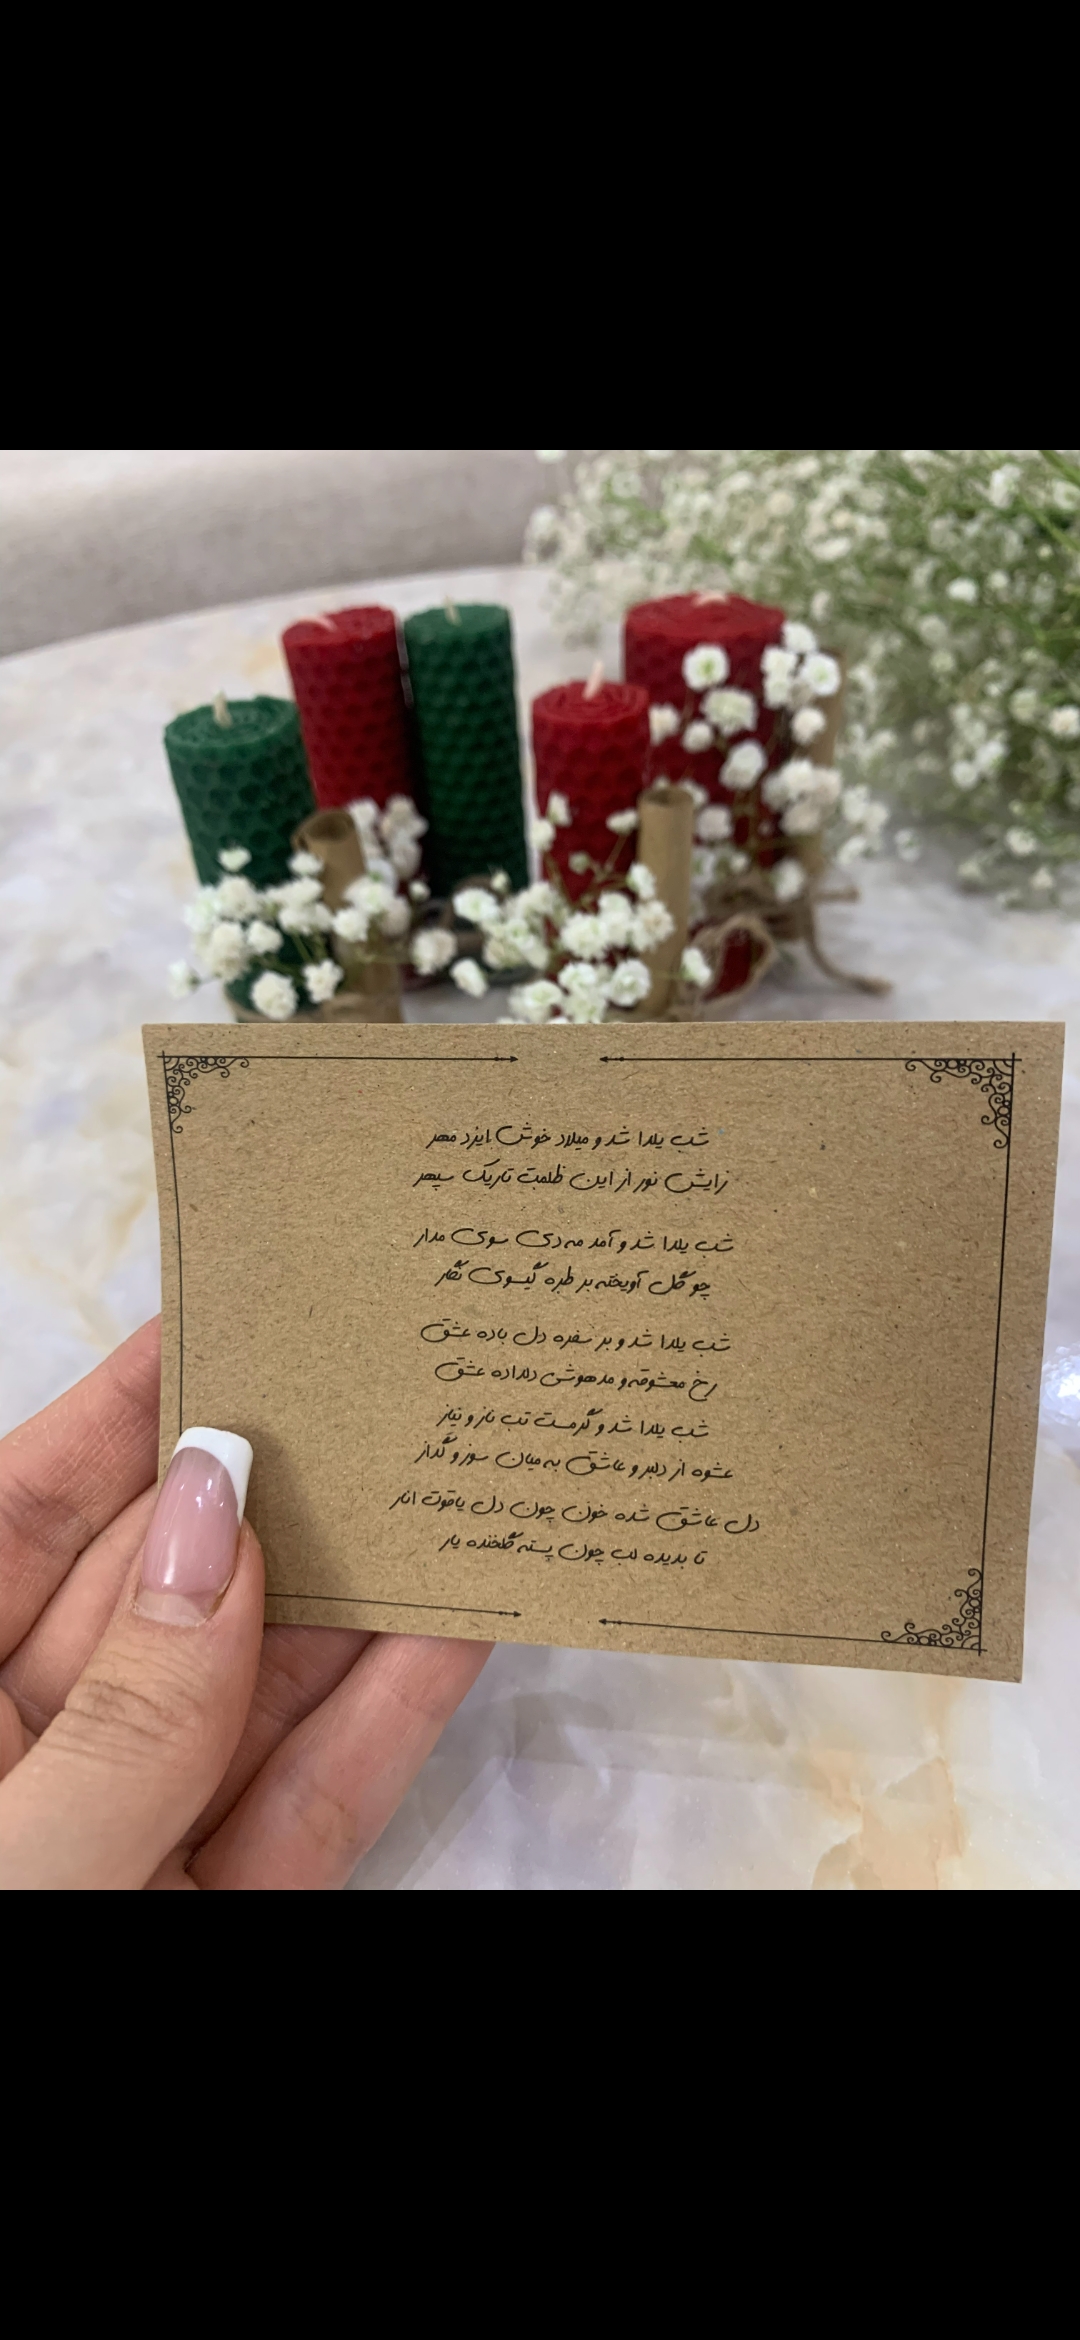 شب یلدا شد و میلاد خوش ایزد مهر
زایش نور از این ظلمت تاریک سپهر
شب یلدا شد و آمد مه دی سوی مدار
چو گل آویخته بر طره گیسوی نگار
شب یلدا شد و بر سفره دل باده عشق
رخ معشوقه و مدهوشی دلداده عشق
شب یلدا شد و گرمست تب ناز و نیاز
عشوه از دلبر و عاشق به میان سوز و گداز
دل عاشق شده خون چون دل یاقوت انار
تا بدیده لب چون پسته گلخنده یار